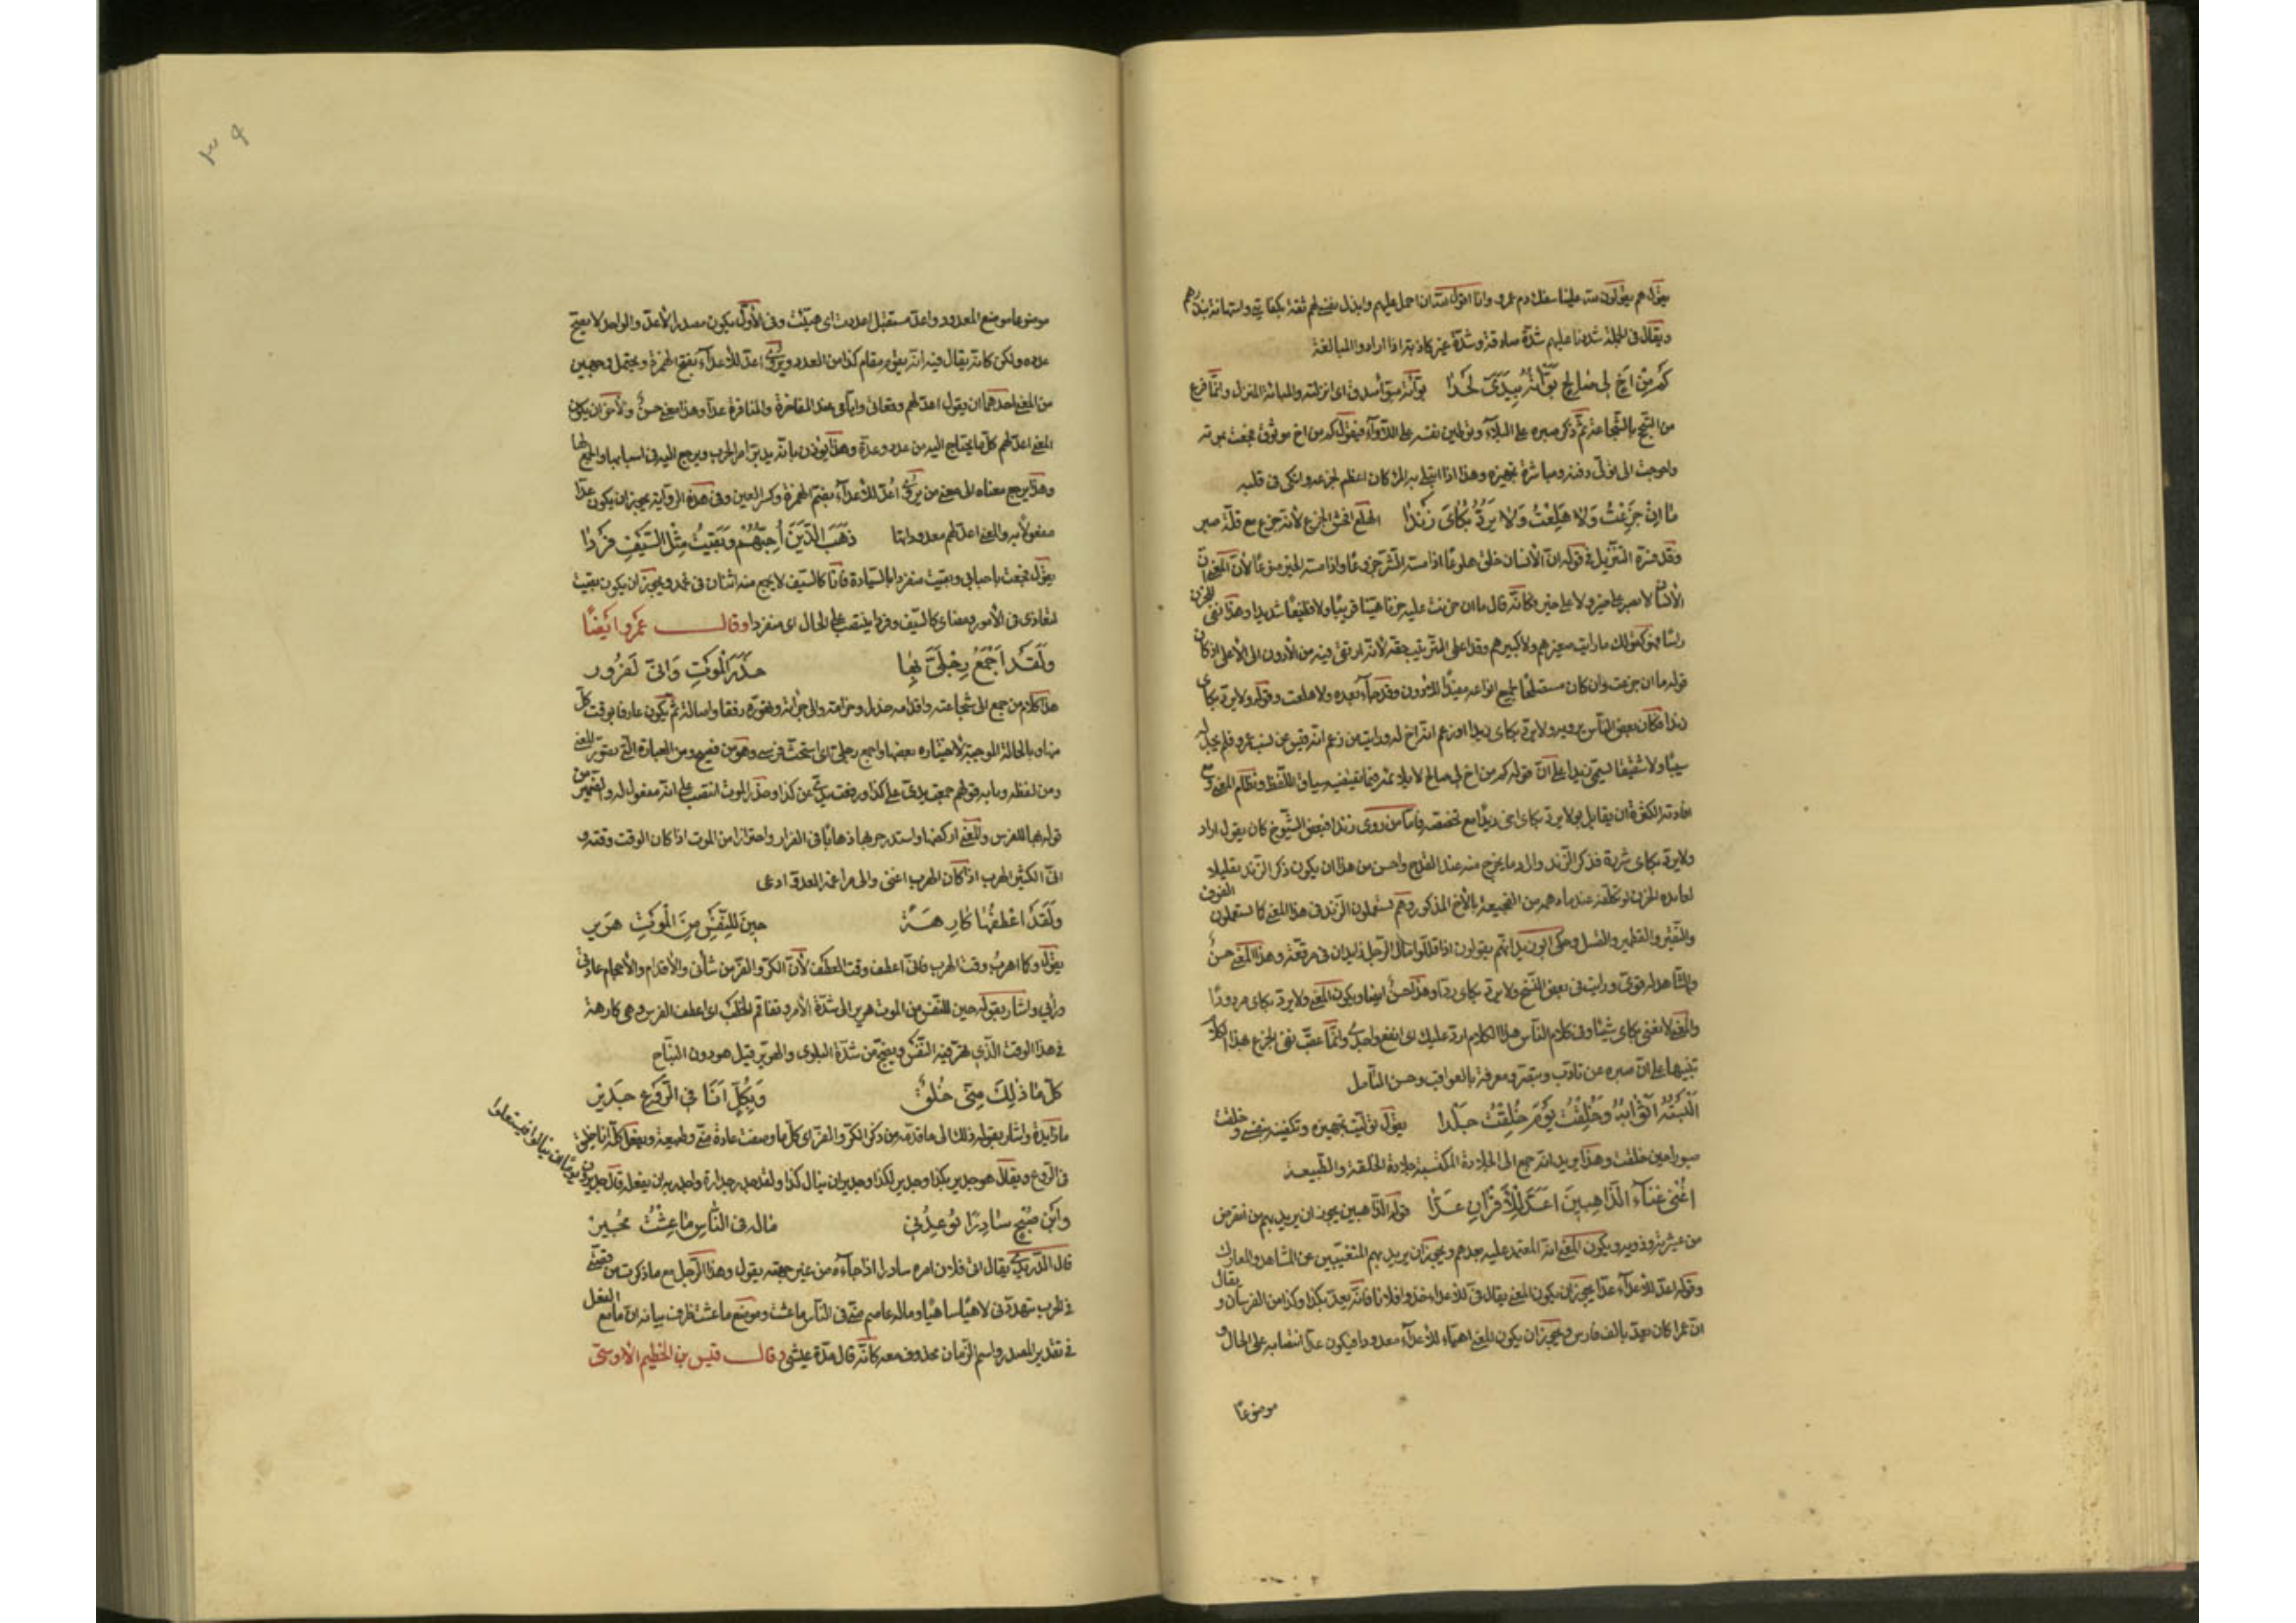 يقول هم يقولون علينا سفك دم عمرو وانا اقول ان احمل عليهم وابذل نفسي لهم ثقة بكفايتي واستهانة بنذرهم
ويقال في الحملة شددنا عليهم شدة صادقة وشدة غير كاذبة اذا ارادوا المبالغة
كَمْ مِنْ أخٍ لي صالحٍ بَوَّأتُهُ بِيَدَيَّ لَحْدا بوّأته مبوّأ صدق اي انزلته والمباءة المنزل وانما فرغ
من التبجح بالشجاعة ثم ذكر صبره على البلاء وتوطين نفسه على اللأواء فيقول كم من اخ موثوق فجعت بموته
واحوجت الى تولي دفنه ومباشرة تجهيزه وهذا اذا ابتلي به المرء كان اعظم لجزعه وانكى في قلبه
ما إنْ جَزِعْتُ وَلا هَلِعْتُ وَلا يَرُدُّ بُكايَ زَنْدا الهلع افحش الجزع لأنه جزع مع قلة صبر
وقد فسره التنزيل في قوله ان الأنسان خلق هلوعا اذا مسه الشر جزوعا واذا مسه الخير منوعا لأن المعنى ان
الأنسان لا يصبر على خير ولا على فكأنه قال ما ان حزنت عليه حزنا هينا قريبا ولا فظيعا شديدا وهذا نفي للحزن
رأسا فهو كقولك ما رأيت صغيرهم ولا كبيرهم وقد اعلى الترتيب حقه لأنه ارتقى فيه من الأدون الى الأعلى اذ كان
قوله ما ان جزعت وان كان مستصلحا لجميع انواعه مفيدا للأدون وقد جاء بعده ولا هلعت وقوله ولا يرد بكاي
زندا فكان بعض الناس يرويه ولا يرد بكاي زيدا وزعم انه اخ له ورأيت من زعم انه فتش عن نسب عمرو فلم يجد له
نسيبا ولا شقيقا يسمى زيدا على ان قوله كم من اخ لي صالح لا يلائمه فيما يقتضيه سياق اللفظ ونظام المعنى مع
افادته الكثرة ان يقابل بولا يرد بكاي اخي زيدا مع تخصصه فاما من روى زندا فبعض الشيوخ كان يقول اراد
ولا يرد بكاي شررة فذكر الزند واراد ما يخرج منه عند القدح واحسن من هذا ان يكون ذكر الزند تقليلا
لعائدة الحزن لو تكلفه عند ما دهمه من الفجيعة بالأخ المذكور وهم يستعملون الزند في هذا المعنى كما يستعملون الفوف
والنقير والقطمير والفتيل وحكى ابو زيد انهم يقولون اذا قللوا مال الرجل زندان في مرقعة وهذا المعنى حسن
والشاهد له قوي ورأيت في بعض النسخ ولا يرد بكاي ردا وهذا حسن ايضا ويكون المعنى ولا يرد بكاي مردودا
والمعنى لا يغني بكاي شيئا وفي كلام الناس هذا الكلام ارد عليك اي انفع واجدى وانما عقب نفي الجزع بهذا الكلام
تنبيها على ان صبره عن تأدب وتبصر ومعرفة بالعواقب وحسن التأمل
ألْبَسْتُهُ أثْوابَهُ وَخُلِقْتُ يَوْمَ خُلِقْتُ جَلْدا يقول توليت تجهيزه وتكفينه بنفسي وخلقت
صبورا حين خلقت وهذا يريد انه جمع الى الجلادة المكتسبة جلادة الخلقة والطبيعة
أُغْني غَناءَ الذّاهِبينَ أُعَدُّ لِلأَقْرانِ عَدّا قوله الذاهبين يجوز ان يريد بهم من انقرض
من عشيرته وذويه ويكون المعنى انه المعتمد عليه بعدهم ويجوز ان يريد بهم المتغيبين عن المشاهد والمعارك
وقوله اعد للأعداء عدا يجوز ان يكون المعنى يقال في للأعداء خذوا فلانا فانه يعد بكذا وكذا من الفرسان ويقال
ان عمرا كان يعد بالف فارس ويجوز ان يكون المعنى اهيأ للأعداء معدودا فيكون عدا انتصابه على الحال و
موضوعا
٣٩
موضوعا موضع المعدود واعد مستقبل اعددت اي هيئت وفي الأول يكون مصدرا لأعد والواحد لا يصح
عدده ولكن كأنه يقال فيه انه يقوم مقام كذا من العدد ويروى اعد للأعداء بفتح الهمزة ويحتمل وجهين
من المعنى احدهما ان يقول اعد لهم وقعاتي وايامي عند المفاخرة والمنافرة عدا وهذا معنى حسن والأخر ان يكون
المعنى اعد لهم كل ما يحتاج اليه من عدد وعدة وهذا يؤذن بانه يدبر امر الحرب ويرجع اليه في اسبابها والجمع لها
وهذا يرجع معناه الى معنى من يروى أُعِدُّ للأعداء بضم الهمزة وكسر العين وفي هذه الرواية يجوز ان يكون عدا
مفعولا به والمعنى اعد لهم معدوداتها ذَهَبَ الَّذينَ أُحِبُّهُمْ وَبَقيتُ مِثْلَ السَّيْفِ فَرْدا
يقول فجعت باحبابي وبقيت منفردا بالسيادة فأنا كالسيف لا يجمع منه اثنان في غمد ويجوز ان يكون بقيت
لنفاذي في الأمور ومضاي كالسيف وفردا ينتصب على الحال اي منفردا وقال عمرو ايضا
وَلَقَدْ أجْمَعُ رِجْلَيَّ بِها حَذَرَ المَوْتِ وَإنّي لَفَرُور
هذا كلام من جمع الى شجاعته واقدامه حذرا وحزامة والى جرأته وتهوره رفقا واسالة ثم يكون عارفا بوقت كل
منها وبالحالة الموجبة لأختياره بعضها واجمع رجلي اي استحث فرسي وهو من فصيح ومن العبارة التي تصور المعنى
ومن لفظه وبابه قولهم جمعت يدي على كذا ورفعت يدي عن كذا وحذر الموت انتصب على انه مفعول له والضمير من
قوله بها للفرس والمعنى اركضها واستدر جريها ذهابا في الفرار واحترازا من الموت اذا كان الوقت وقته و
اني الكثير الهرب اذا كان الهرب اغنى والى مراغمة العدو ادعى
وَلَقَدْ أعْطِفُها كارِهَةً حينَ لِلنَّفْسِ مِنَ المَوْتِ هَرير
يقول وكما اهرب وقت الهرب فاني اعطف وقت العطف لأن الكر والفر من شأني والأقدام والأحجام عادتي
ورأيي واشار بقوله حين للنفس من الموت هرير الى شدة الأمر وتفاقم الخطب اي اعطف الفرس وهي كارهة
في هذا الوقت الذي تهر فيه النفس ويضج من شدة البلوى والهرير قيل هو دون النباح
كُلُّ ما ذلِكَ مِنّي خُلُقٌ وَبِكُلٍّ أنا في الرَّوْعِ جَدير
ما زائدة واشار بقوله ذلك الى ما قدمه من ذكر الكر والفر اي كل ما وصفت عادة مني وطبيعة وبفعل كله انا خليق
في الروع ويقال هو جدير بكذا وجدير لكذا وجدير ان ينال كذا ولقد جدر جدارة واجدر به ان يفعله قال جديرون
يوما ان ينالوا فيستعلوا
وَابْنُ صُبْحٍ سادِرًا يُوعِدُني ما لَهُ في النّاسِ ما عِشْتُ مُجير
قال الدريدي يقال اتى فلان امره سادرا اذا جاءه من غير جهته يقول وهذا الرجل مع ما ذكرت من قصتي
في الحرب يتهددني لاهيا ساهيا وما له عاصم مني في الناس ما عشت وموضع ما عشت ظرف بيانه ان ما مع الفعل
في تقدير المصدر واسم الزمان محذوف معه كأنه قال مدة عيشي وقال قيس بن الخطيم الأوسي